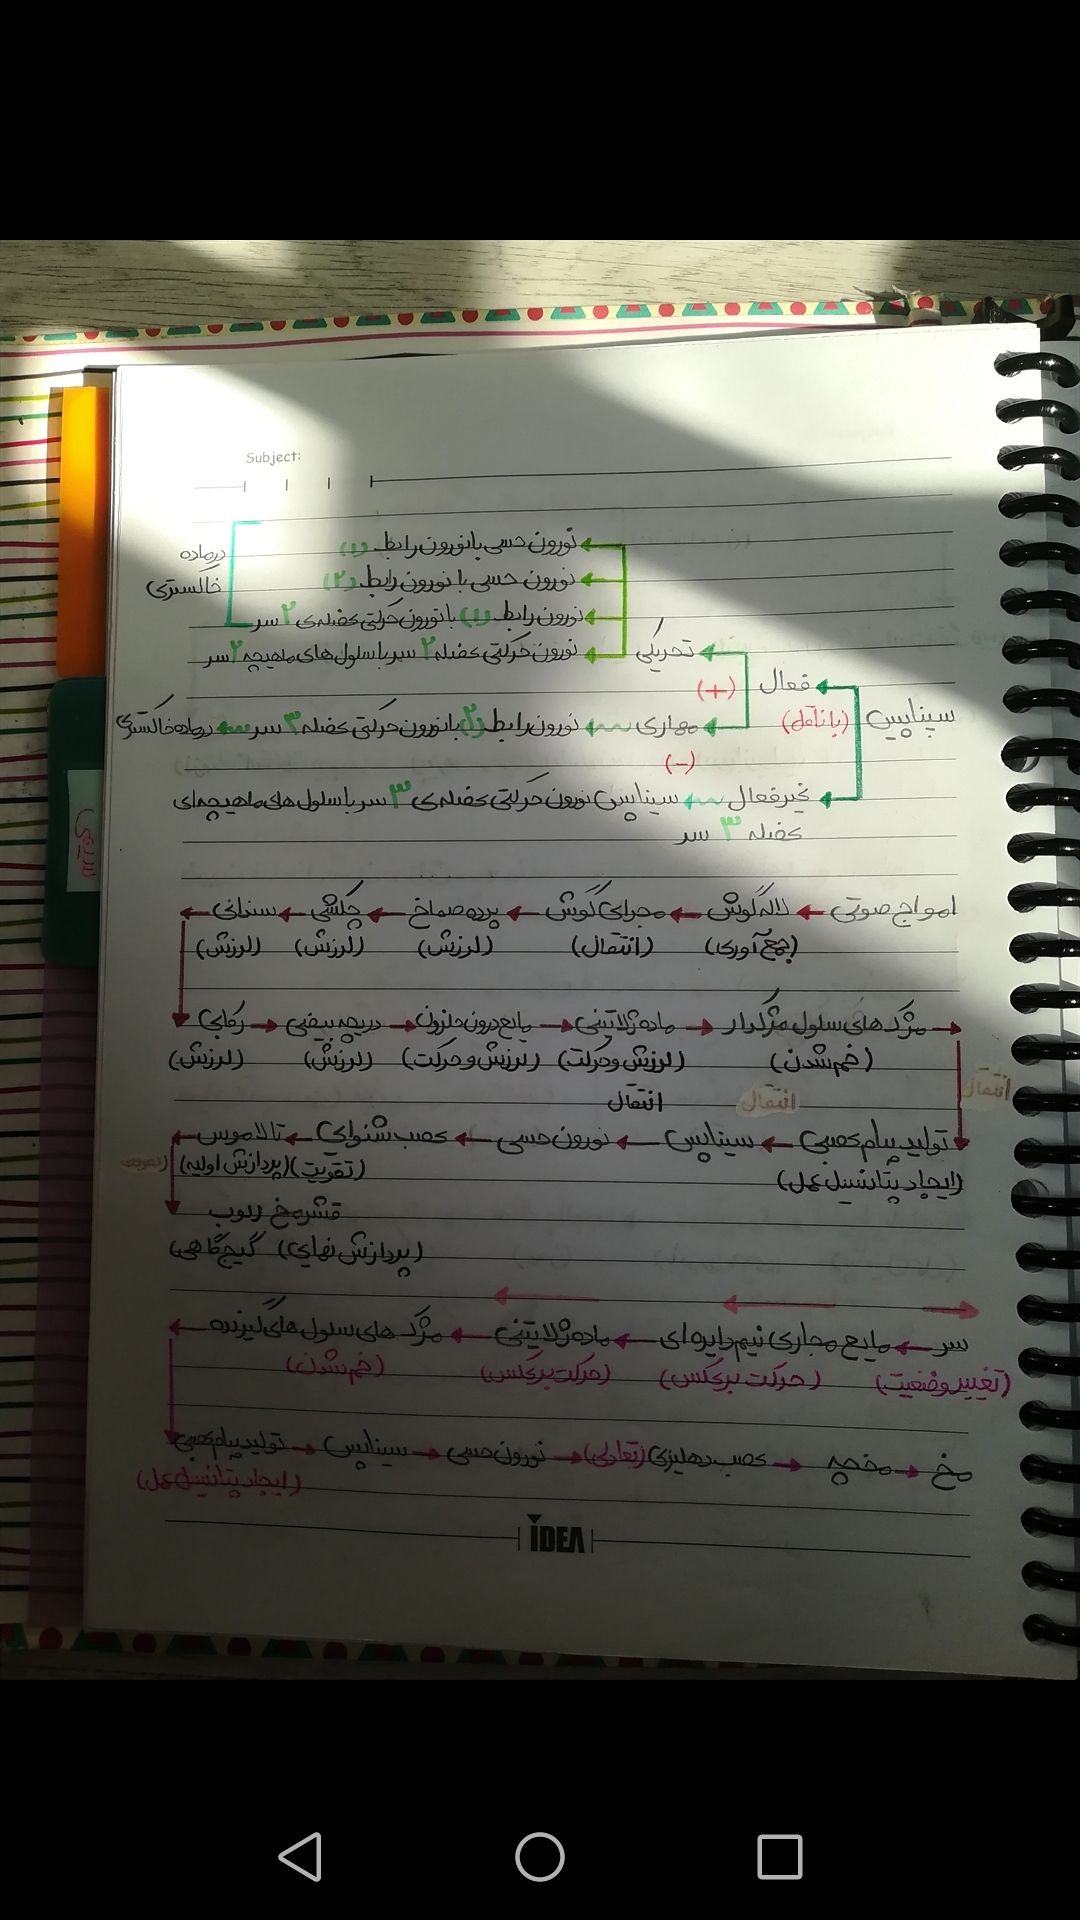 Subject:
نورون حسی با نورون رابط (۱)
نورون حسی با نورون رابط (۲)
نورون رابط (۱) با نورون حرکتی عضله‌ی ۲ سر
در ماده خاکستری
نورون حرکتی عضله ۲ سر با سلول های ماهیچه ۲ سر
تحریکی
(+)
فعال
(با ناقل)
سیناپس
مهاری نورون رابط (۲) با نورون حرکتی عضله ۳ سر در ماده خاکستری
(-)
غیرفعال سیناپس نورون حرکتی عضله‌ی ۳ سر با سلول های ماهیچه ای
عضله ۳ سر
امواج صوتی ← لاله گوش ← مجرای گوش ← پرده صماخ ← چکشی ← سندانی ←
(جمع آوری) (انتقال) (لرزش) (لرزش) (لرزش)
رکابی → دریچه بیضی → مایع درون حلزون → ماده ژلاتینی → مژک های سلول مژکدار →
(لرزش) (لرزش) (لرزش و حرکت) (لرزش و حرکت) (خم شدن)
انتقال انتقال انتقال
تولید پیام عصبی ← سیناپس ← نورون حسی ← عصب شنوایی ← تالاموس ←
(ایجاد پتانسیل عمل) (تقویت) (پردازش اولیه)
قشر مخ لوب
(پردازش نهایی) گیجگاهی
سر ← مایع مجاری نیم دایره ای ← ماده ژلاتینی ← مژک های سلول های گیرنده ←
(تغییر وضعیت) (حرکت برعکس) (حرکت برعکس) (خم شدن)
تولید پیام عصبی → سیناپس → نورون حسی → عصب دهلیزی (تعادلی) → مخچه → مخ
(ایجاد پتانسیل عمل)
IDEA